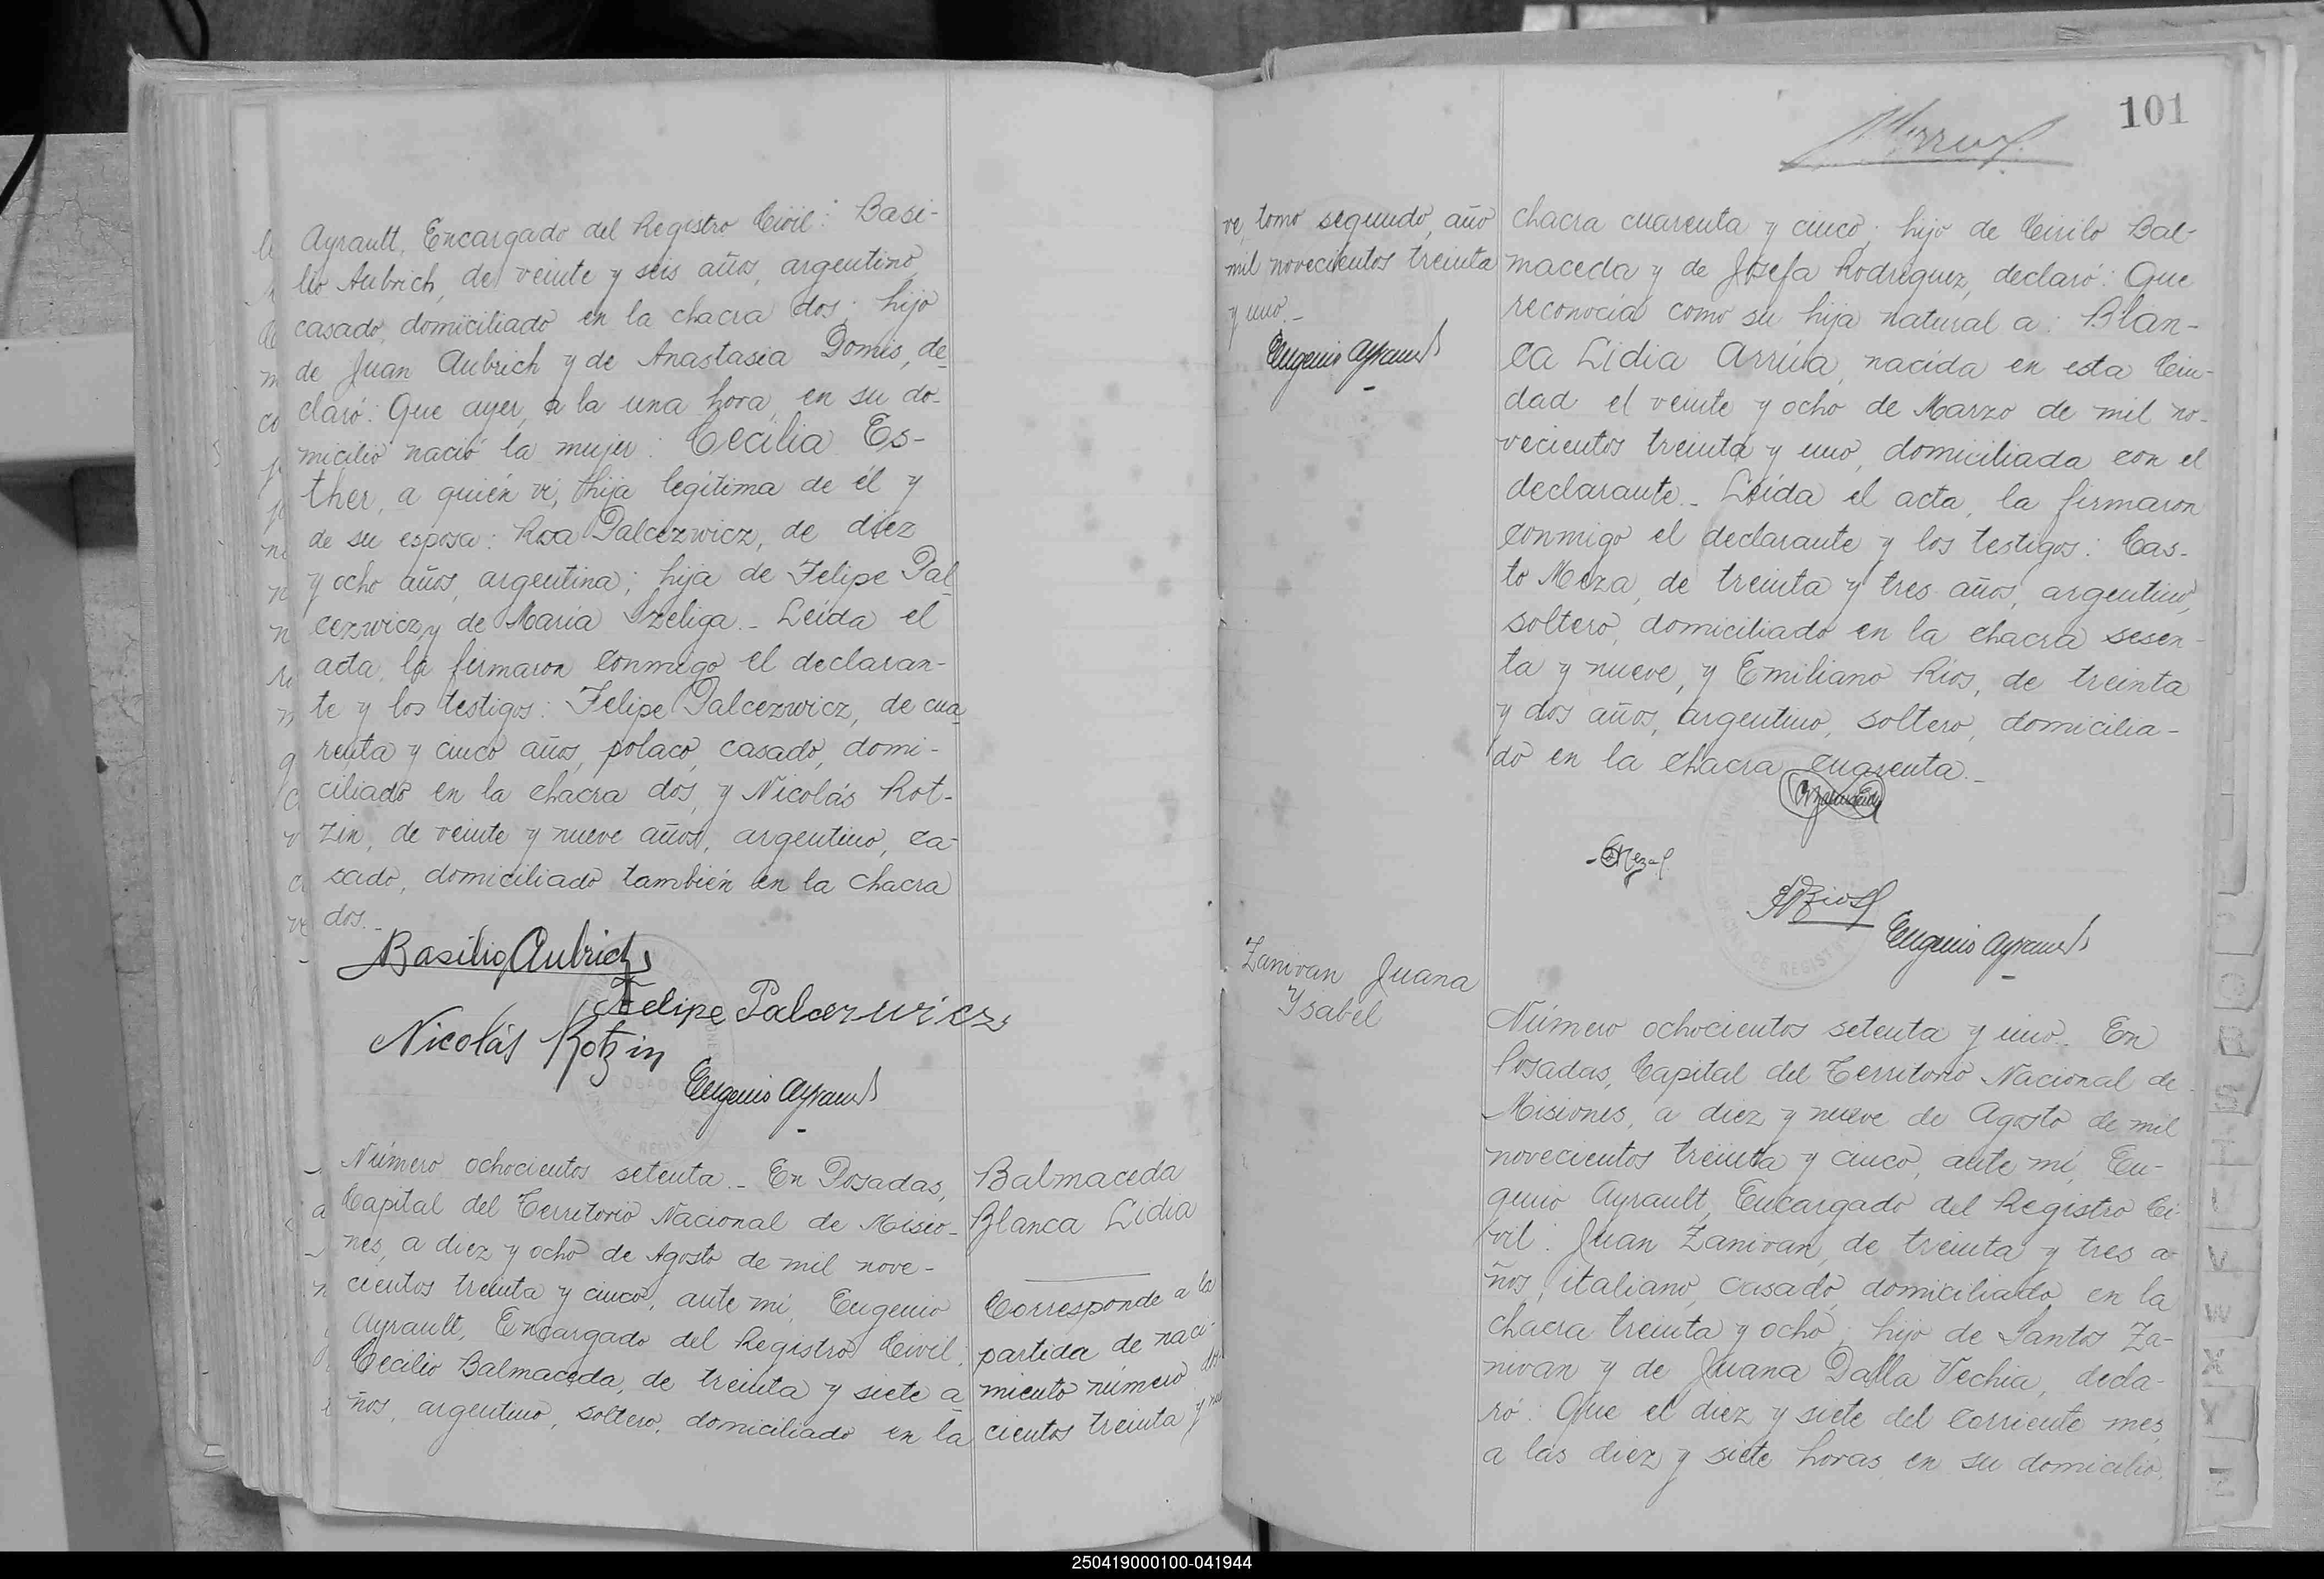 Ayrault, Encargado del Registro Civil: Basi-
lio Aubrich, de veinte y seis años, argentino,
casado, domiciliado en la chacra dos; hijo
de Juan Aubrich y de Anastasia Domis, de-
claró: Que ayer, a la una hora, en su do-
micilio nació la mujer: Cecilia Es-
ther, a quién ví, hija legítima de él y
de su esposa: Rosa Palcezwicz, de diez
y ocho años, argentina; hija de Felipe Pal
cezwicz y de María Szeliga.- Leída el
acta, la firmaron conmigo el declaran-
te y los testigos: Felipe Palcezwicz, de cua
renta y cinco años, polaco, casado, domi-
ciliado en la chacra dos, y Nicolás Rot-
zin, de veinte y nueve años, argentino, ca-
sado, domiciliado también en la chacra
dos.-
Basilio Aubrich
Felipe Palcezwicz
Nicolás Rotzin
Eugenio Ayrault
Número ochocientos setenta.- En Posadas,
Capital del Territorio Nacional de Misio-
nes, a diez y ocho de Agosto de mil nove-
cientos treinta y cinco, ante mí, Eugenio
Ayrault, Encargado del Registro Civil:
Cecilio Balmaceda, de treinta y siete a
ños, argentino, soltero, domiciliado en la
Balmaceda
Blanca Lidia
Corresponde a la
partida de naci-
miento número dos
cientos treinta y nue
ve, tomo segundo, año
mil novecientos treinta
y uno.-
Eugenio Ayrault
Zanivan Juana
Ysabel
101
chacra cuarenta y cinco; hijo de Cirilo Bal-
maceda y de Josefa Rodríguez, declaró: Que
reconocía como su hija natural a: Blan-
ca Lidia Arrúa, nacida en esta Ciu-
dad el veinte y ocho de Marzo de mil no-
vecientos treinta y uno, domiciliada con el
declarante.- Leída el acta, la firmaron
conmigo el declarante y los testigos: Cas-
to Meza, de treinta y tres años, argentino,
soltero, domiciliado en la chacra sesen-
ta y nueve, y Emiliano Ríos, de treinta
y dos años, argentino, soltero, domicilia-
do en la chacra cuarenta.-
Eugenio Ayrault
Número ochocientos setenta y uno. En
Posadas, Capital del Territorio Nacional de
Misiones, a diez y nueve de Agosto de mil
novecientos treinta y cinco, ante mí, Eu-
genio Ayrault, Encargado del Registro Ci-
vil: Juan Zanivan, de treinta y tres a-
ños, italiano, casado, domiciliado en la
chacra treinta y ocho; hijo de Santos Za-
nivan y de Juana Dalla Vechia, decla-
ró: Que el diez y siete del corriente mes,
a las diez y siete horas, en su domicilio,
250419000100-041944